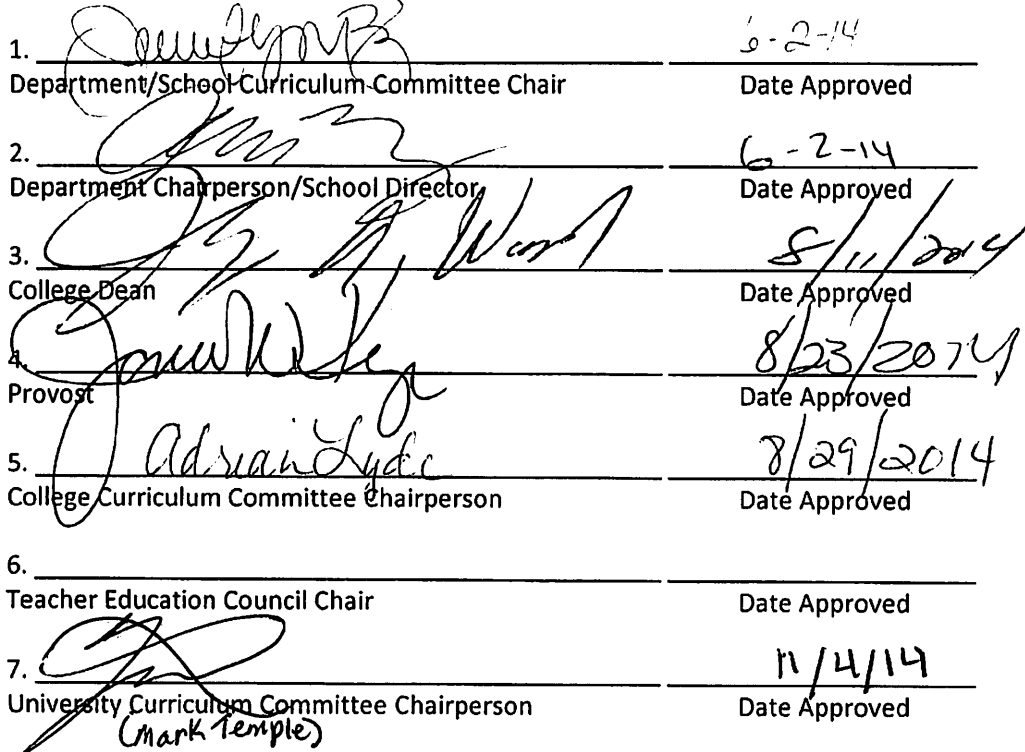 1. 6-2-14
Department/School Curriculum Committee Chair Date Approved
2. 6-2-14
Department Chairperson/School Director Date Approved
3. 8/11/2014
College Dean Date Approved
4. 8/23/2014
Provost Date Approved
5. Adrian Lyde 8/29/2014
College Curriculum Committee Chairperson Date Approved
6.
Teacher Education Council Chair Date Approved
7. 11/4/14
University Curriculum Committee Chairperson Date Approved
(Mark Temple)